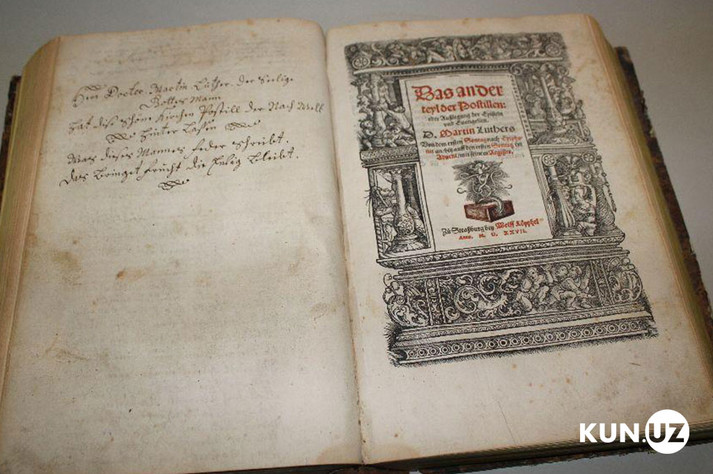 Herr Doctor Martin Luther der Seelige
Gottes Mann
hat diß Schöne Kirchen Postill der Nach Welt
hinter laßen
Was dieses Mannes feder Schreibt.
das bringet frücht die Ewig bleibt.
Das ander
teyl der Postillen:
oder Außlegung der Episteln
und Euangelien.
D. Martin Luthers
Von dem ersten Sonntag nach
an biß auff den ersten Sontag im
Aduent / mit seinem Register.
Zů Straßburg bey Wolff Köpphel
Anno. M. D. XXVII.
KUN.UZ